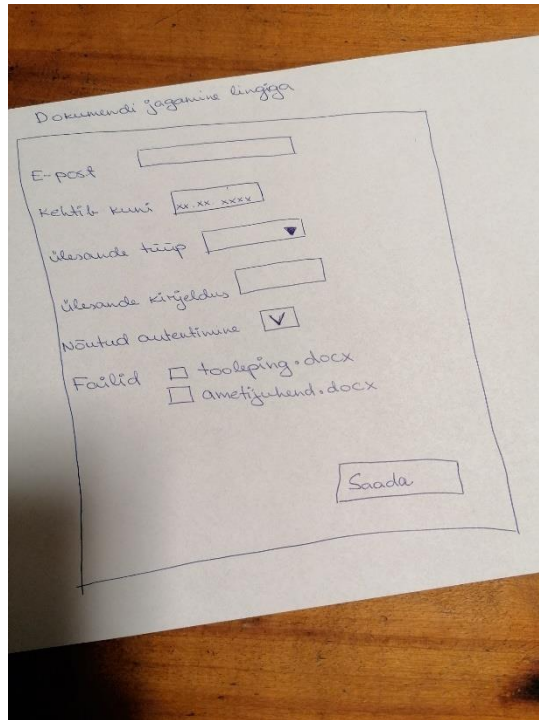 Dokumendi jagamine lingiga
E-post
Kehtib kuni xx.xx.xxxx
ülesande tüüp
ülesande kirjeldus
Nõutud autentimine V
Failid tooleping.docx
ametijuhend.docx
Saada